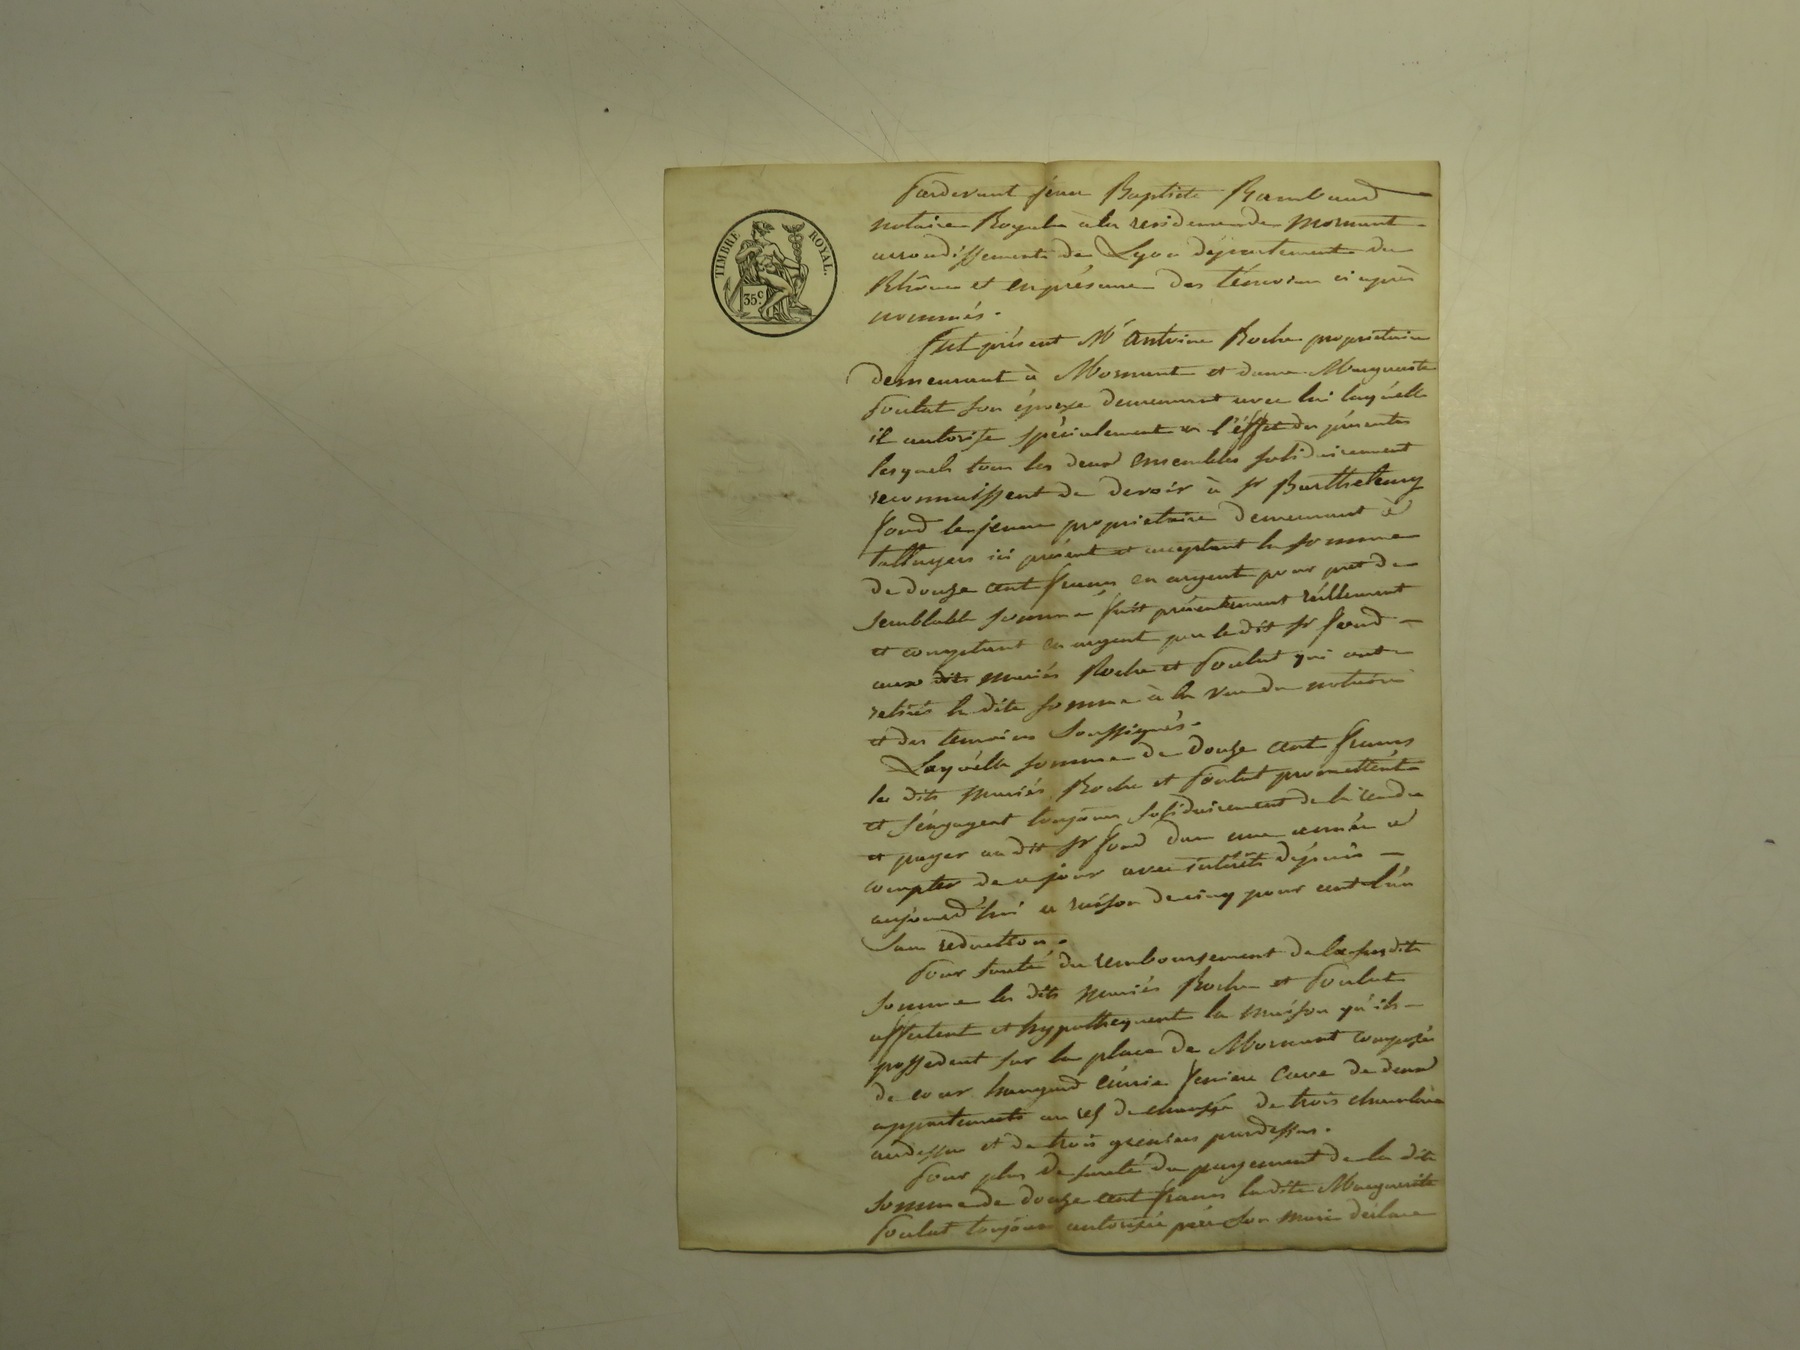 TIMBRE ROYAL.
35 c.
Pardevant jean Baptiste Rambaud
notaire Royal à la residence de Mornant
arrondissement de Lyon département du
Rhône et en présence des témoins ci après
nommés.
Fut présent Mr Antoine Roche propriétaire
demeurant à Mornant et dame Marguerite
Poulat son épouse demeurant avec lui laquélle
il autorise spécialement a l'éffet des présentes
lesquels tous les deux ensembles solidairement
reconnaissent de devoir à Sr Barthelemy
fond le jeune propriétaire demeurant à
talluyers ici présent et acceptant la somme
de douze cent francs en argent pour pret de
semblable somme fait présentement réellement
et comptant en argent par le dit Sr fond
aux dits mariés Roche et Poulat qui ont
retirés la dite somme à la vue du notaire
et des temoins soussignés.
Laquélle somme de douze cent francs
les dits mariés Roche et Poulat promettent
et s'engagent toujours solidairement de la rendre
et payer au dit Sr fond dans une année a
compter de ce jour avec intérêts dépuis
aujourd'hui a raison de cinq pour cent l'an
sans reduction.
Pour sureté du remboursement de la susdite
somme les dits mariés Roche et Poulat
affectent et hypothequent la maison qu'ils
possedent sur la place de Mornant composée
de cour hangard écurie feniere cave de deux
appartements au rez de chaussée de trois chambres
audessus et de trois greniers pardessus.
Pour plus de sureté du payement de la dite
somme de douze cent francs la dite Marguerite
Poulat toujours autorisée par son mari déclare